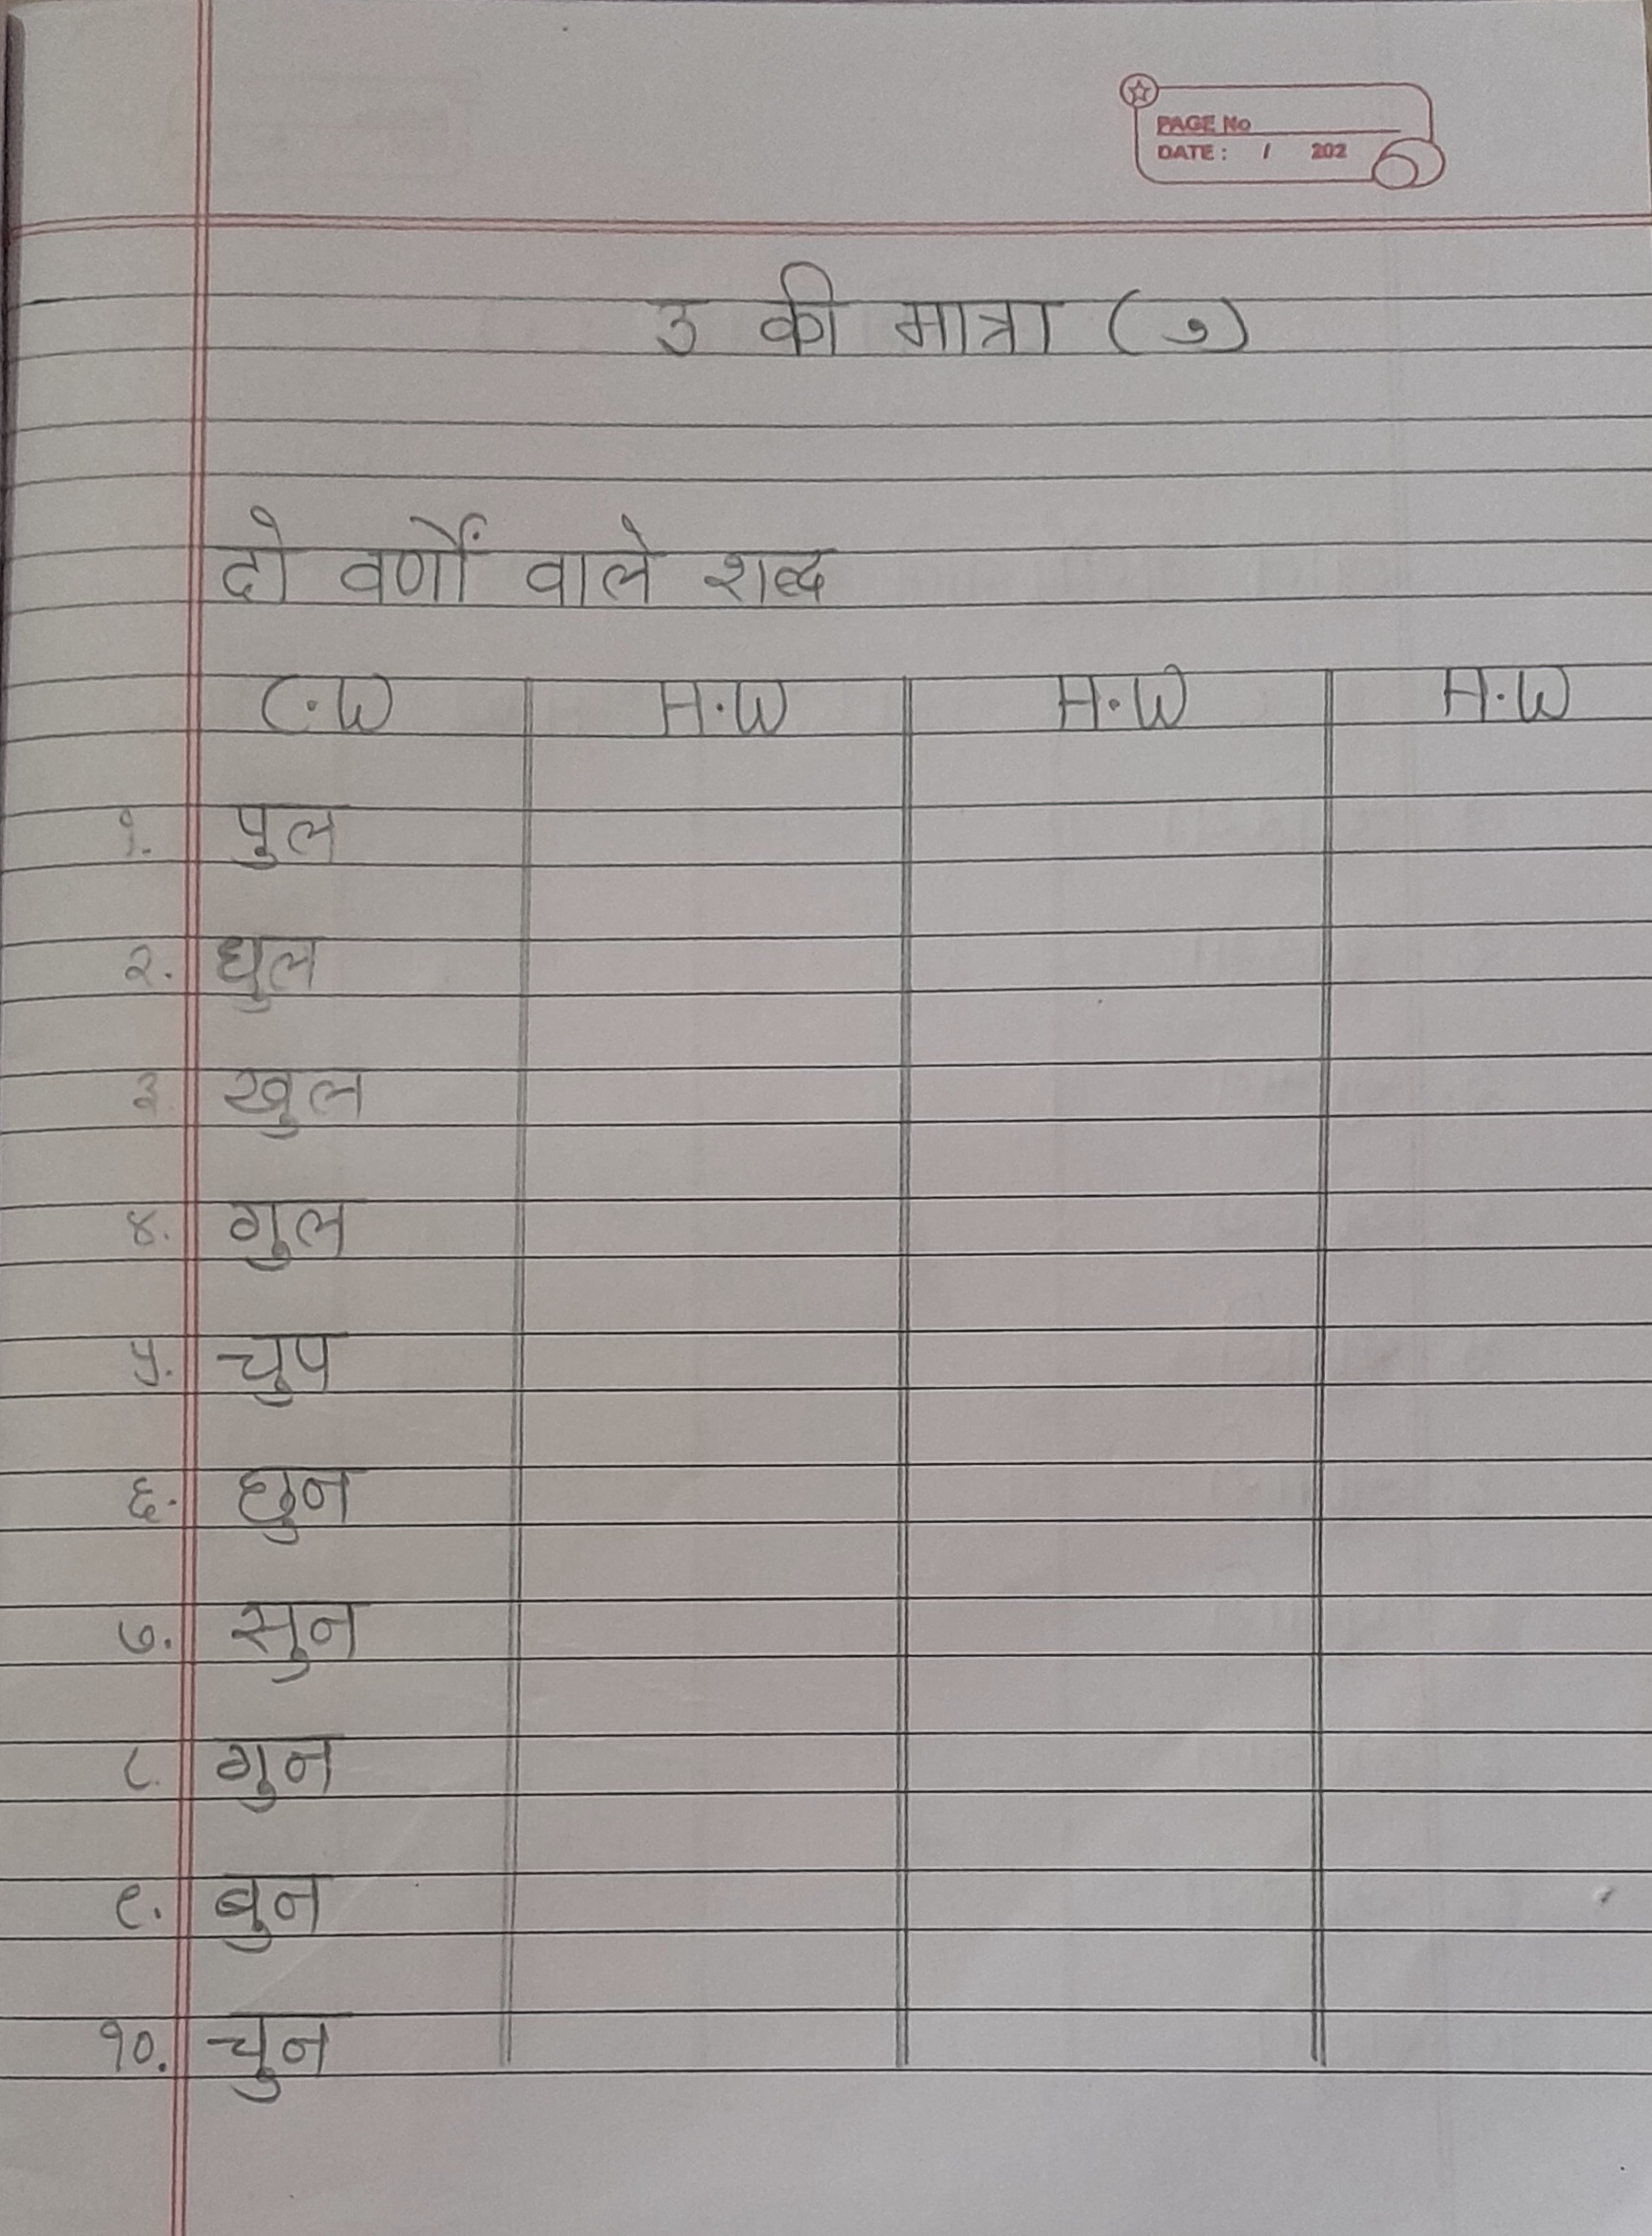 PAGE No
DATE: / 202
उ की मात्रा ( ु)
दो वर्णों वाले शब्द
C.W H.W H.W H.W
१. पुल
२. घुल
३. खुल
४. गुल
५. चुप
६. छुन
७. सुन
८. गुन
९. बुन
१०. चुन